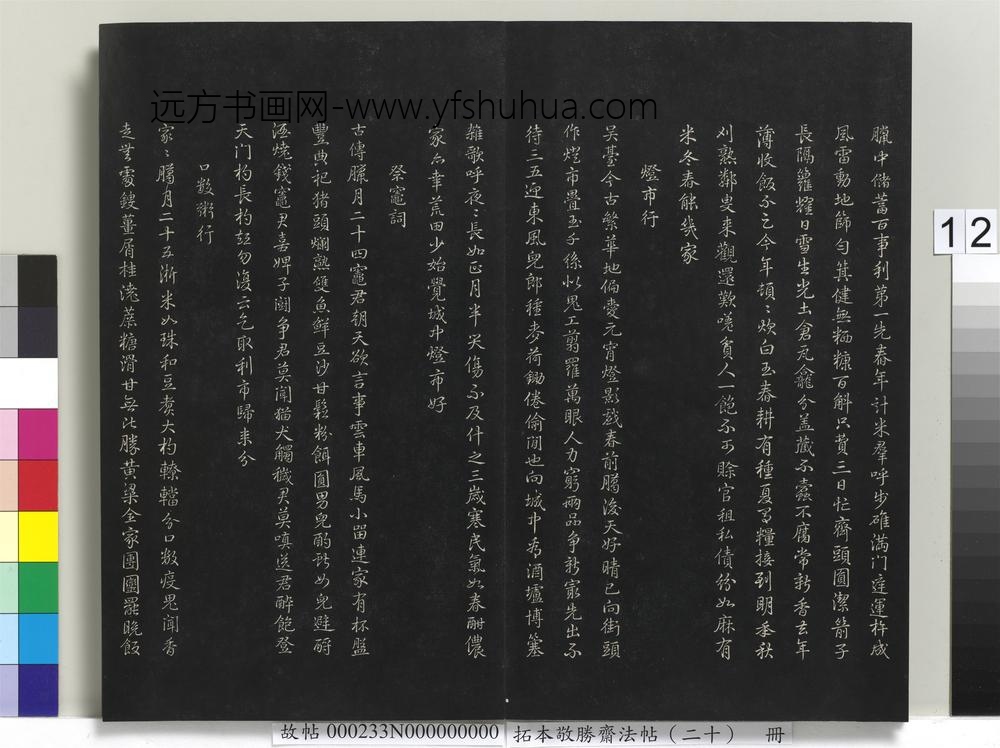 臘中儲蓄百事利第一先舂年計米羣呼步碓滿門庭運杵成
風雷動地篩勻箕健無粞糠百斛只費三日忙齊頭圓潔箭子
長隔籮耀日雪生光土倉瓦龕分蓋藏不蠹不腐常新香去年
薄收飯不足今年頓頓炊白玉春耕有種夏有糧接到明年秋
刈熟鄰叟來觀還歎嗟貧人一飽不可賒官租私債紛如麻有
米冬舂能幾家
燈市行
吳臺今古繁華地偏愛元宵燈影戲春前臘後天好晴已向街頭
作燈市疊玉千絲似鬼工剪羅萬眼人力窮兩品爭新最先出不
待三五迎東風兒郎種麥荷鋤倦偷閒也向城中看酒壚博簺
雜歌呼夜夜長如正月半災傷不及什之三歲寒民氣如春酣儂
家亦幸荒田少始覺城中燈市好
祭竈詞
古傳臘月二十四竈君朝天欲言事雲車風馬小留連家有杯盤
豐典祀猪頭爛熟雙魚鮮豆沙甘鬆粉餌圓男兒酌獻女兒避酹
酒燒錢竈君喜婢子鬪爭君莫聞猫犬觸穢君莫嗔送君醉飽登
天门杓長杓短勿復云乞取利市歸來分
口數粥行
家家臘月二十五淅米如珠和豆煑大杓轑鐺分口數疫鬼聞香
走無處鎪薑屑桂澆蔗糖滑甘無比勝黃粱全家團圞罷晚飯
远方书画网-www.yfshuhua.com
12
故帖 000233N000000000
拓本敬勝齋法帖（二十） 冊